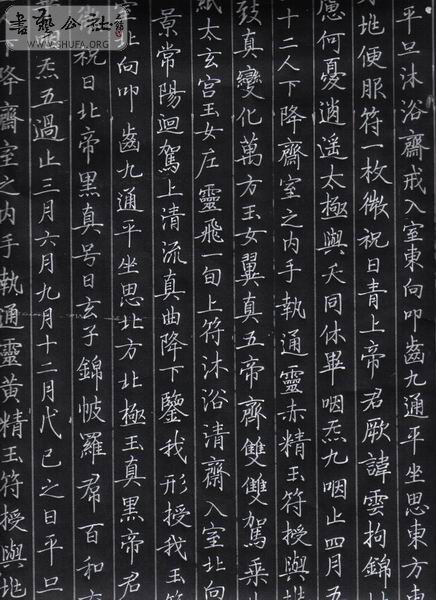 平旦沐浴齋戒入室東向叩齒九通平坐思東方東
地便服符一枚微祝曰青上帝君厥諱雲拘錦
慮何憂逍遥太極與天同休畢咽炁九咽止四月五
十二人下降齋室之内手執通靈赤精玉符授與地
鼓真變化萬方玉女翼真五帝齊雙雙駕乘
太玄宮玉女左靈飛一旬上符沐浴清齋入室北向
景常陽迴駕上清流真曲降下鑒我形授我玉符
北向叩齒九通平坐思北方北極玉真黑帝君
祝曰北帝黑真号曰玄子錦帔羅帬百和
炁五過止三月六月九月十二月戊己之日平旦
降齋室之内手執通靈黃精玉符授與地
書藝公社
WWW.SHUFA.ORG